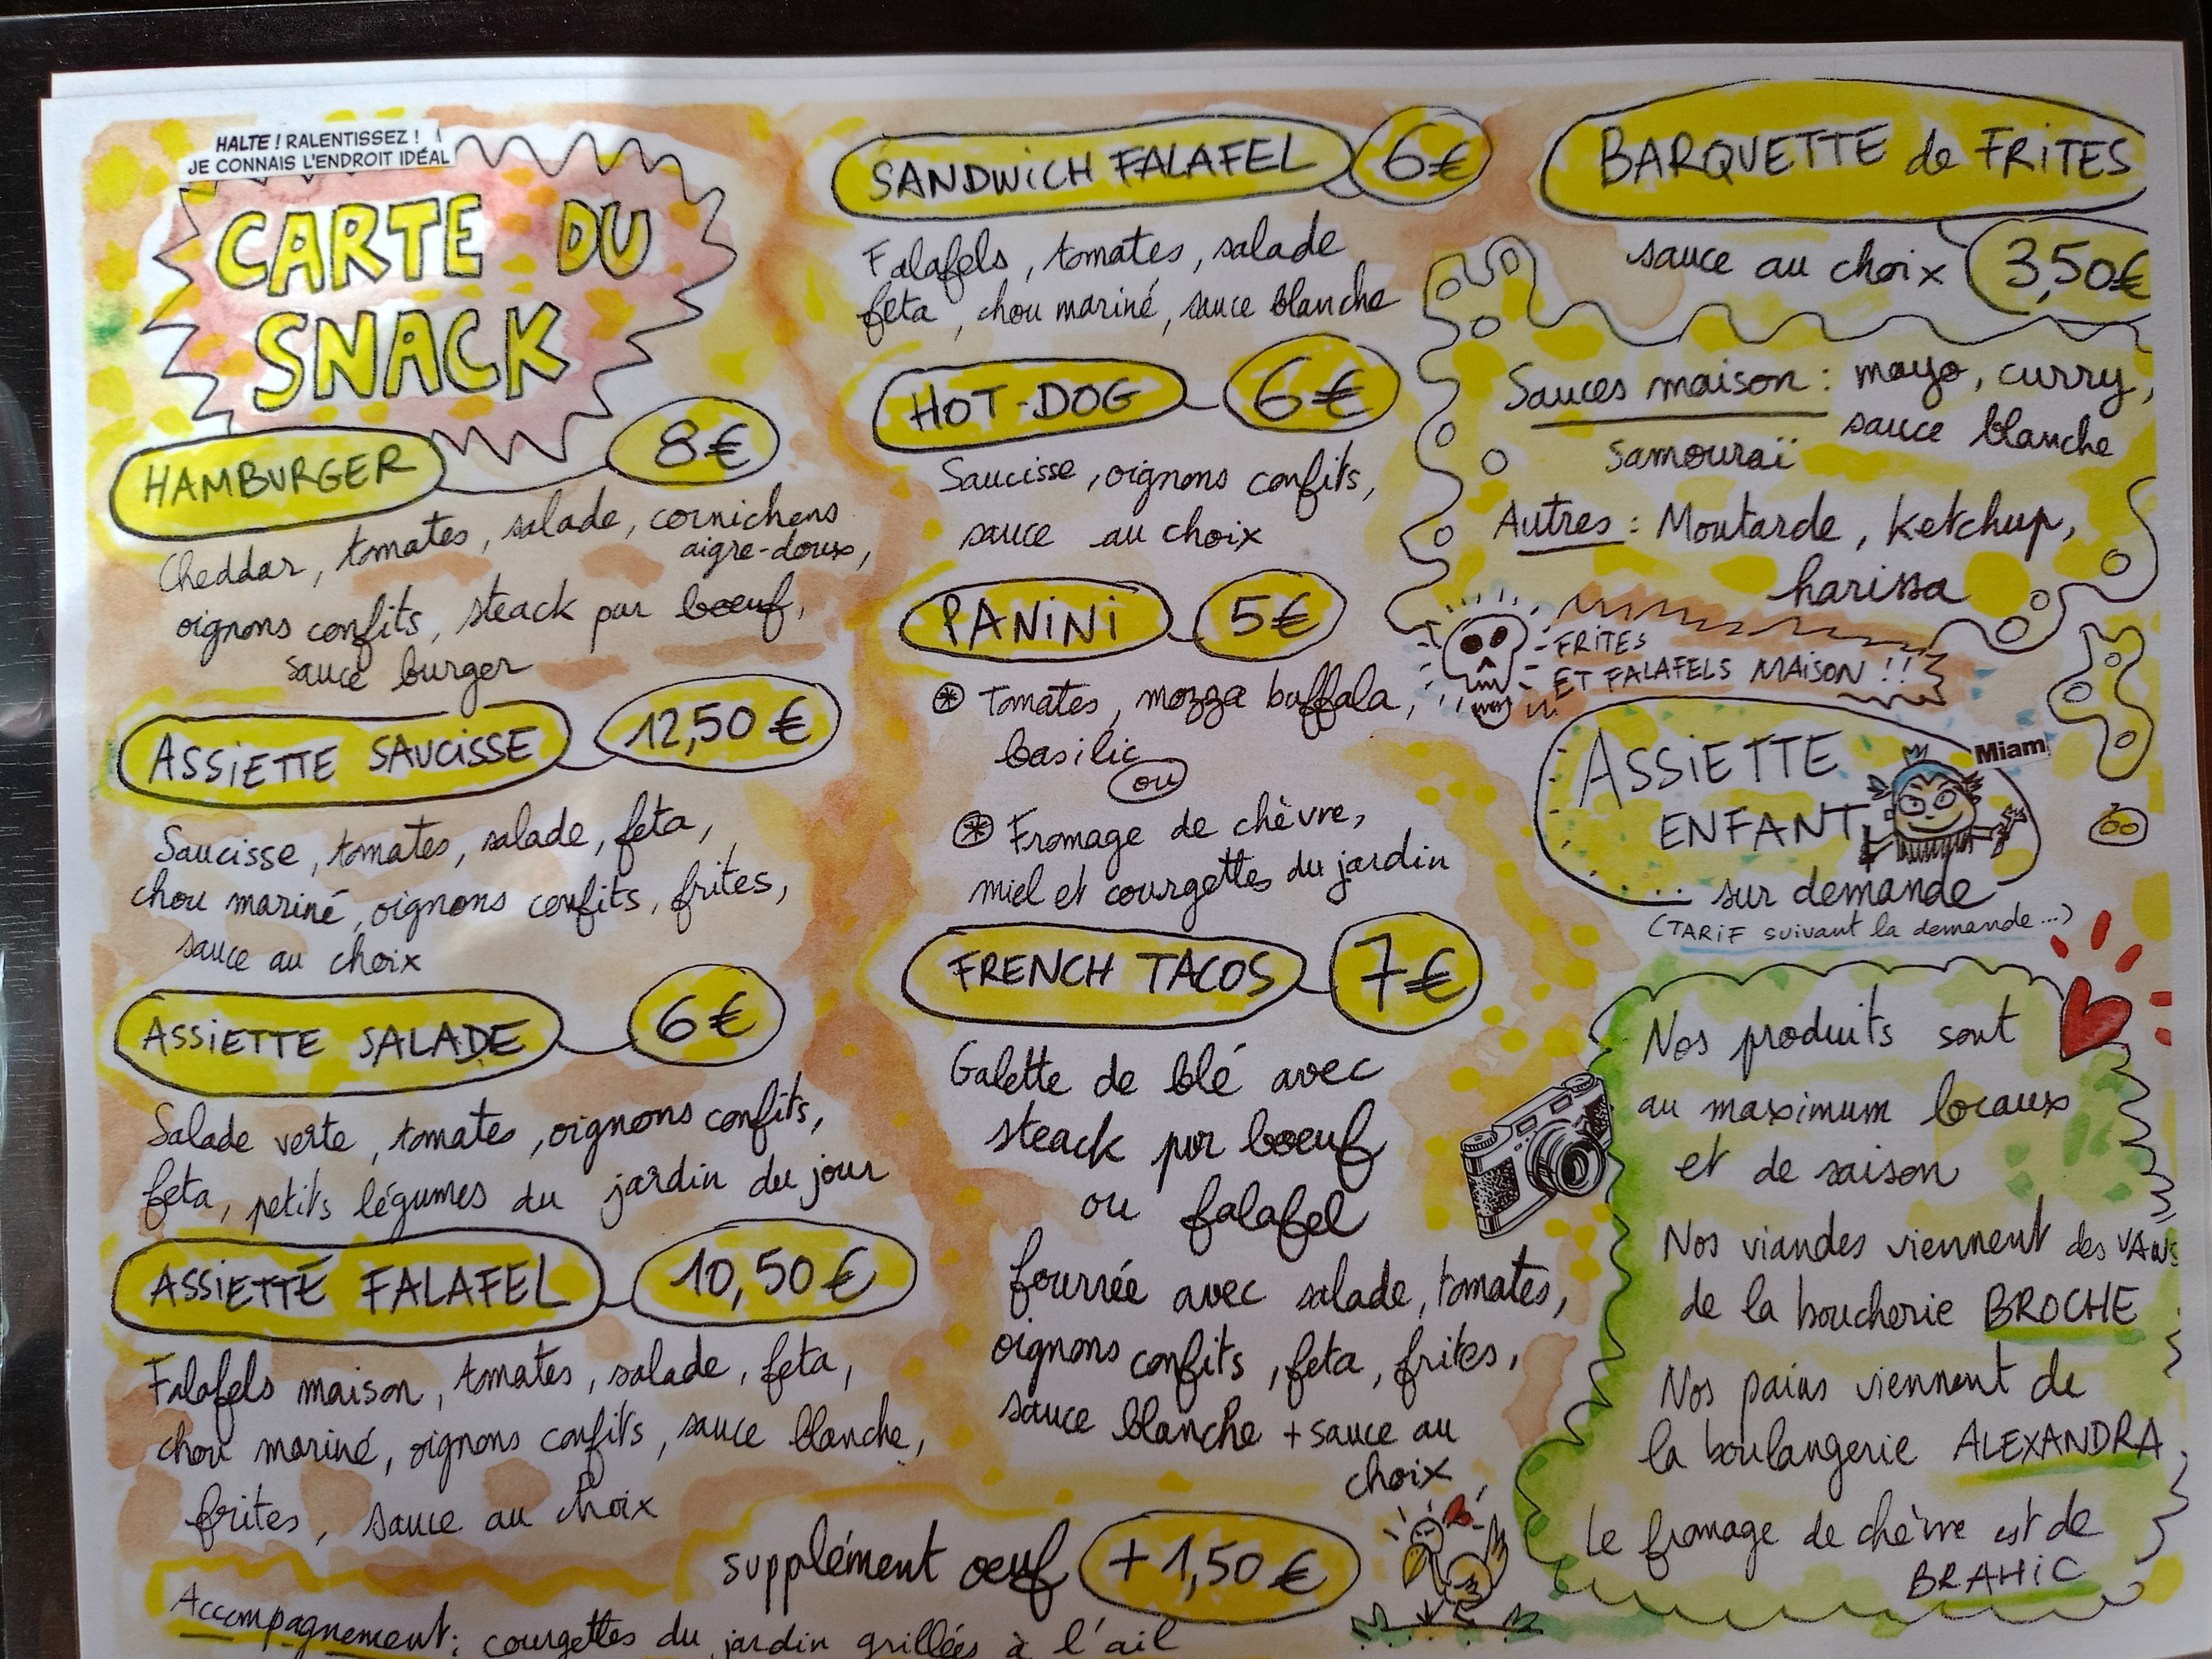 HALTE ! RALENTISSEZ !
JE CONNAIS L'ENDROIT IDÉAL
CARTE DU
SNACK
HAMBURGER 8€
Cheddar, tomates, salade, cornichons
aigre-doux,
oignons confits, steack pur boeuf,
sauce burger
ASSIETTE SAUCISSE 12,50 €
Saucisse, tomates, salade, feta,
chou mariné, oignons confits, frites,
sauce au choix
ASSIETTE SALADE 6€
Salade verte, tomates, oignons confits,
feta, petits légumes du jardin du jour
ASSIETTE FALAFEL 10,50€
Falafels maison, tomates, salade, feta,
chou mariné, oignons confits, sauce blanche,
frites, sauce au choix
supplément oeuf +1,50€
Accompagnement: courgettes du jardin grillées à l'ail
SANDWICH FALAFEL 6€
Falafels, tomates, salade
feta, chou mariné, sauce blanche
HOT-DOG 6€
Saucisse, oignons confits,
sauce au choix
PANINI 5€
* Tomates, mozza buffala,
basilic
ou
* Fromage de chèvre,
miel et courgettes du jardin
FRENCH TACOS 7€
Galette de blé avec
steack pur boeuf
ou falafel
fourrée avec salade, tomates,
oignons confits, feta, frites,
sauce blanche + sauce au
choix
BARQUETTE de FRITES
sauce au choix 3,50€
Sauces maison : mayo, curry,
samouraï sauce blanche
Autres : Moutarde, Ketchup,
harissa
FRITES
ET FALAFELS MAISON !!
ASSIETTE
ENFANT
Miam
... sur demande
(TARIF suivant la demande...)
Nos produits sont
au maximum locaux
et de saison
Nos viandes viennent des VANS
de la boucherie BROCHE
Nos pains viennent de
la boulangerie ALEXANDRA
Le fromage de chèvre est de
BRAHIC